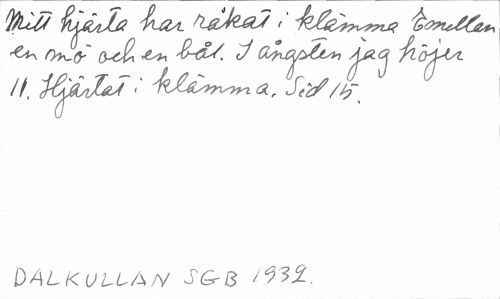 Mitt hjärta har råkat i klämma Emellan
en mö och en båt. I ångsten jag höjer
11. Hjärtat i klämma. Sid 15.
DALKULLAN SGB 1932.